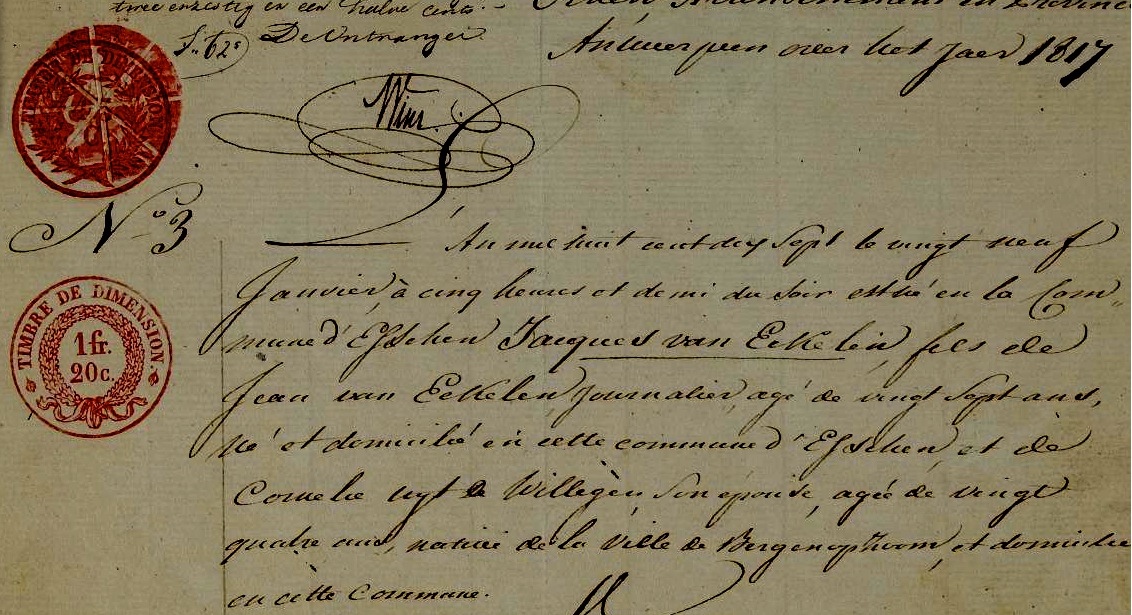 twee en zestig en een halve cents. -
De Ontvanger.
Antwerpen over het jaer 1817
N.° 3
An mil huit cent dix Sept le vingt neuf
Janvier, à cinq heures et demi du Soir est né en la Com„
mune d'Esschen Jacques van Eekelen, fils de
Jean van Eekelen Journalier, agé de vingt Sept ans,
né et domicilié en cette commune d'Esschen, et de
Cornelie uyt de Willegen Son épouse, agée de vingt
quatre ans, native de la Ville de Bergenopzoom, et domicilie
en cette Commune.
TIMBRE DE DIMENSION.
1 fr.
20 c.